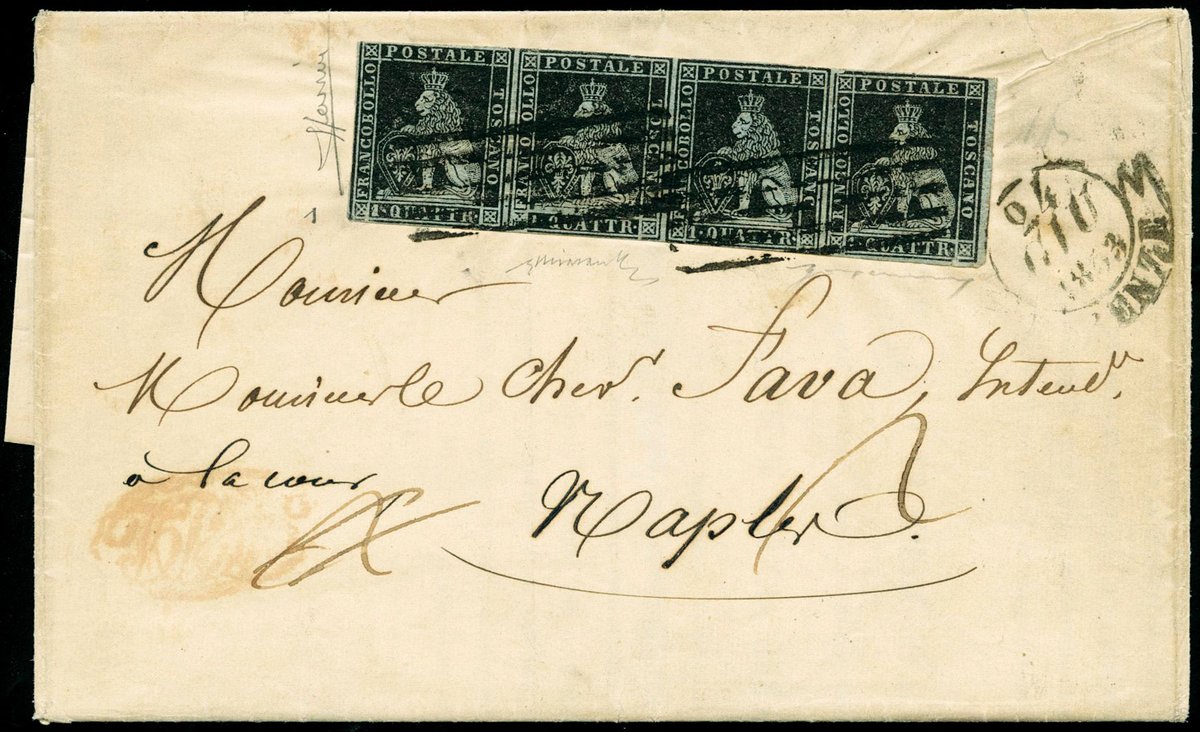 FRANCOBOLLO POSTALE TOSCANO 1 QUATTR.
FRANCOBOLLO POSTALE TOSCANO 1 QUATTR.
FRANCOBOLLO POSTALE TOSCANO 1 QUATTR.
FRANCOBOLLO POSTALE TOSCANO 1 QUATTR.
GIU
1853
Monsieur
Monsieur le Chevr. Fava, Intendr.
à la cour
Naples.